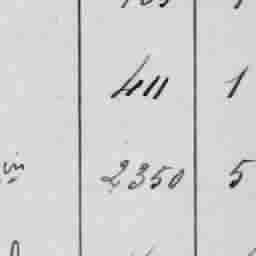 411 1
in 2350 5